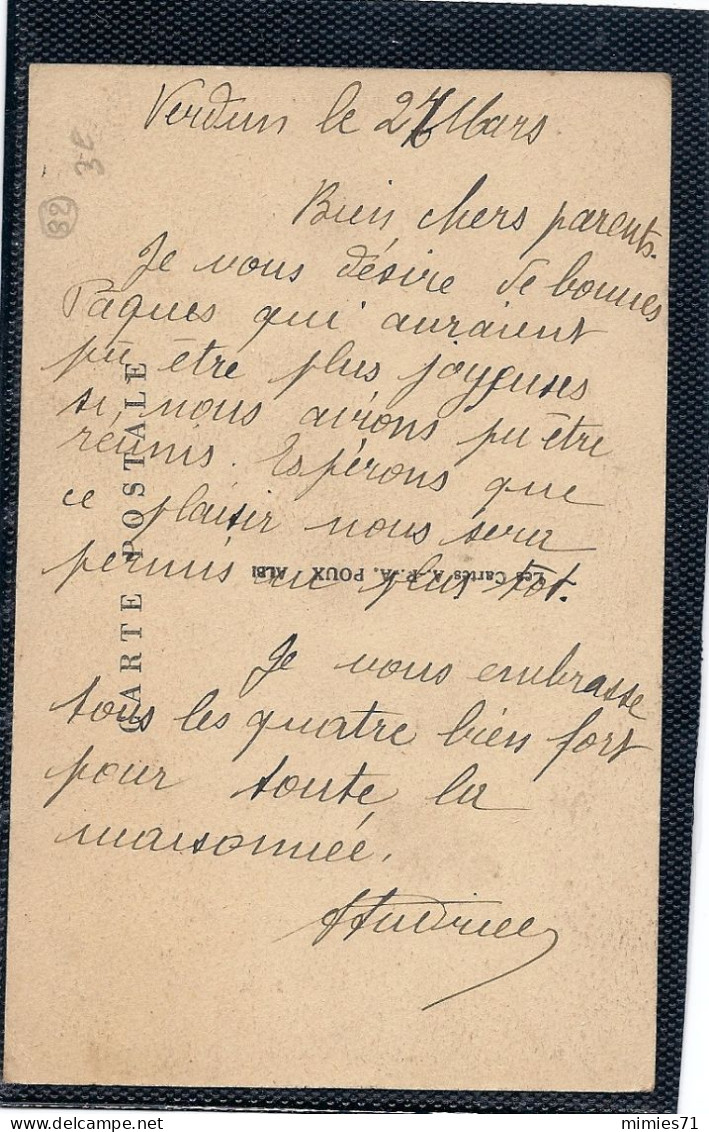 Verdun le 27 Mars
3€
82
Bien chers parents.
Je vous désire de bonnes
Pâques qui auraient
pu être plus joyeuses
si, nous avions pu être
réunis. Espérons que
ce plaisir nous sera
permis au plus tot.
Je vous embrasse
tous les quatre bien fort
pour toute la
maisonnée.
CARTE POSTALE
Les Cartes A. P.-A. POUX ALBI
mimies71